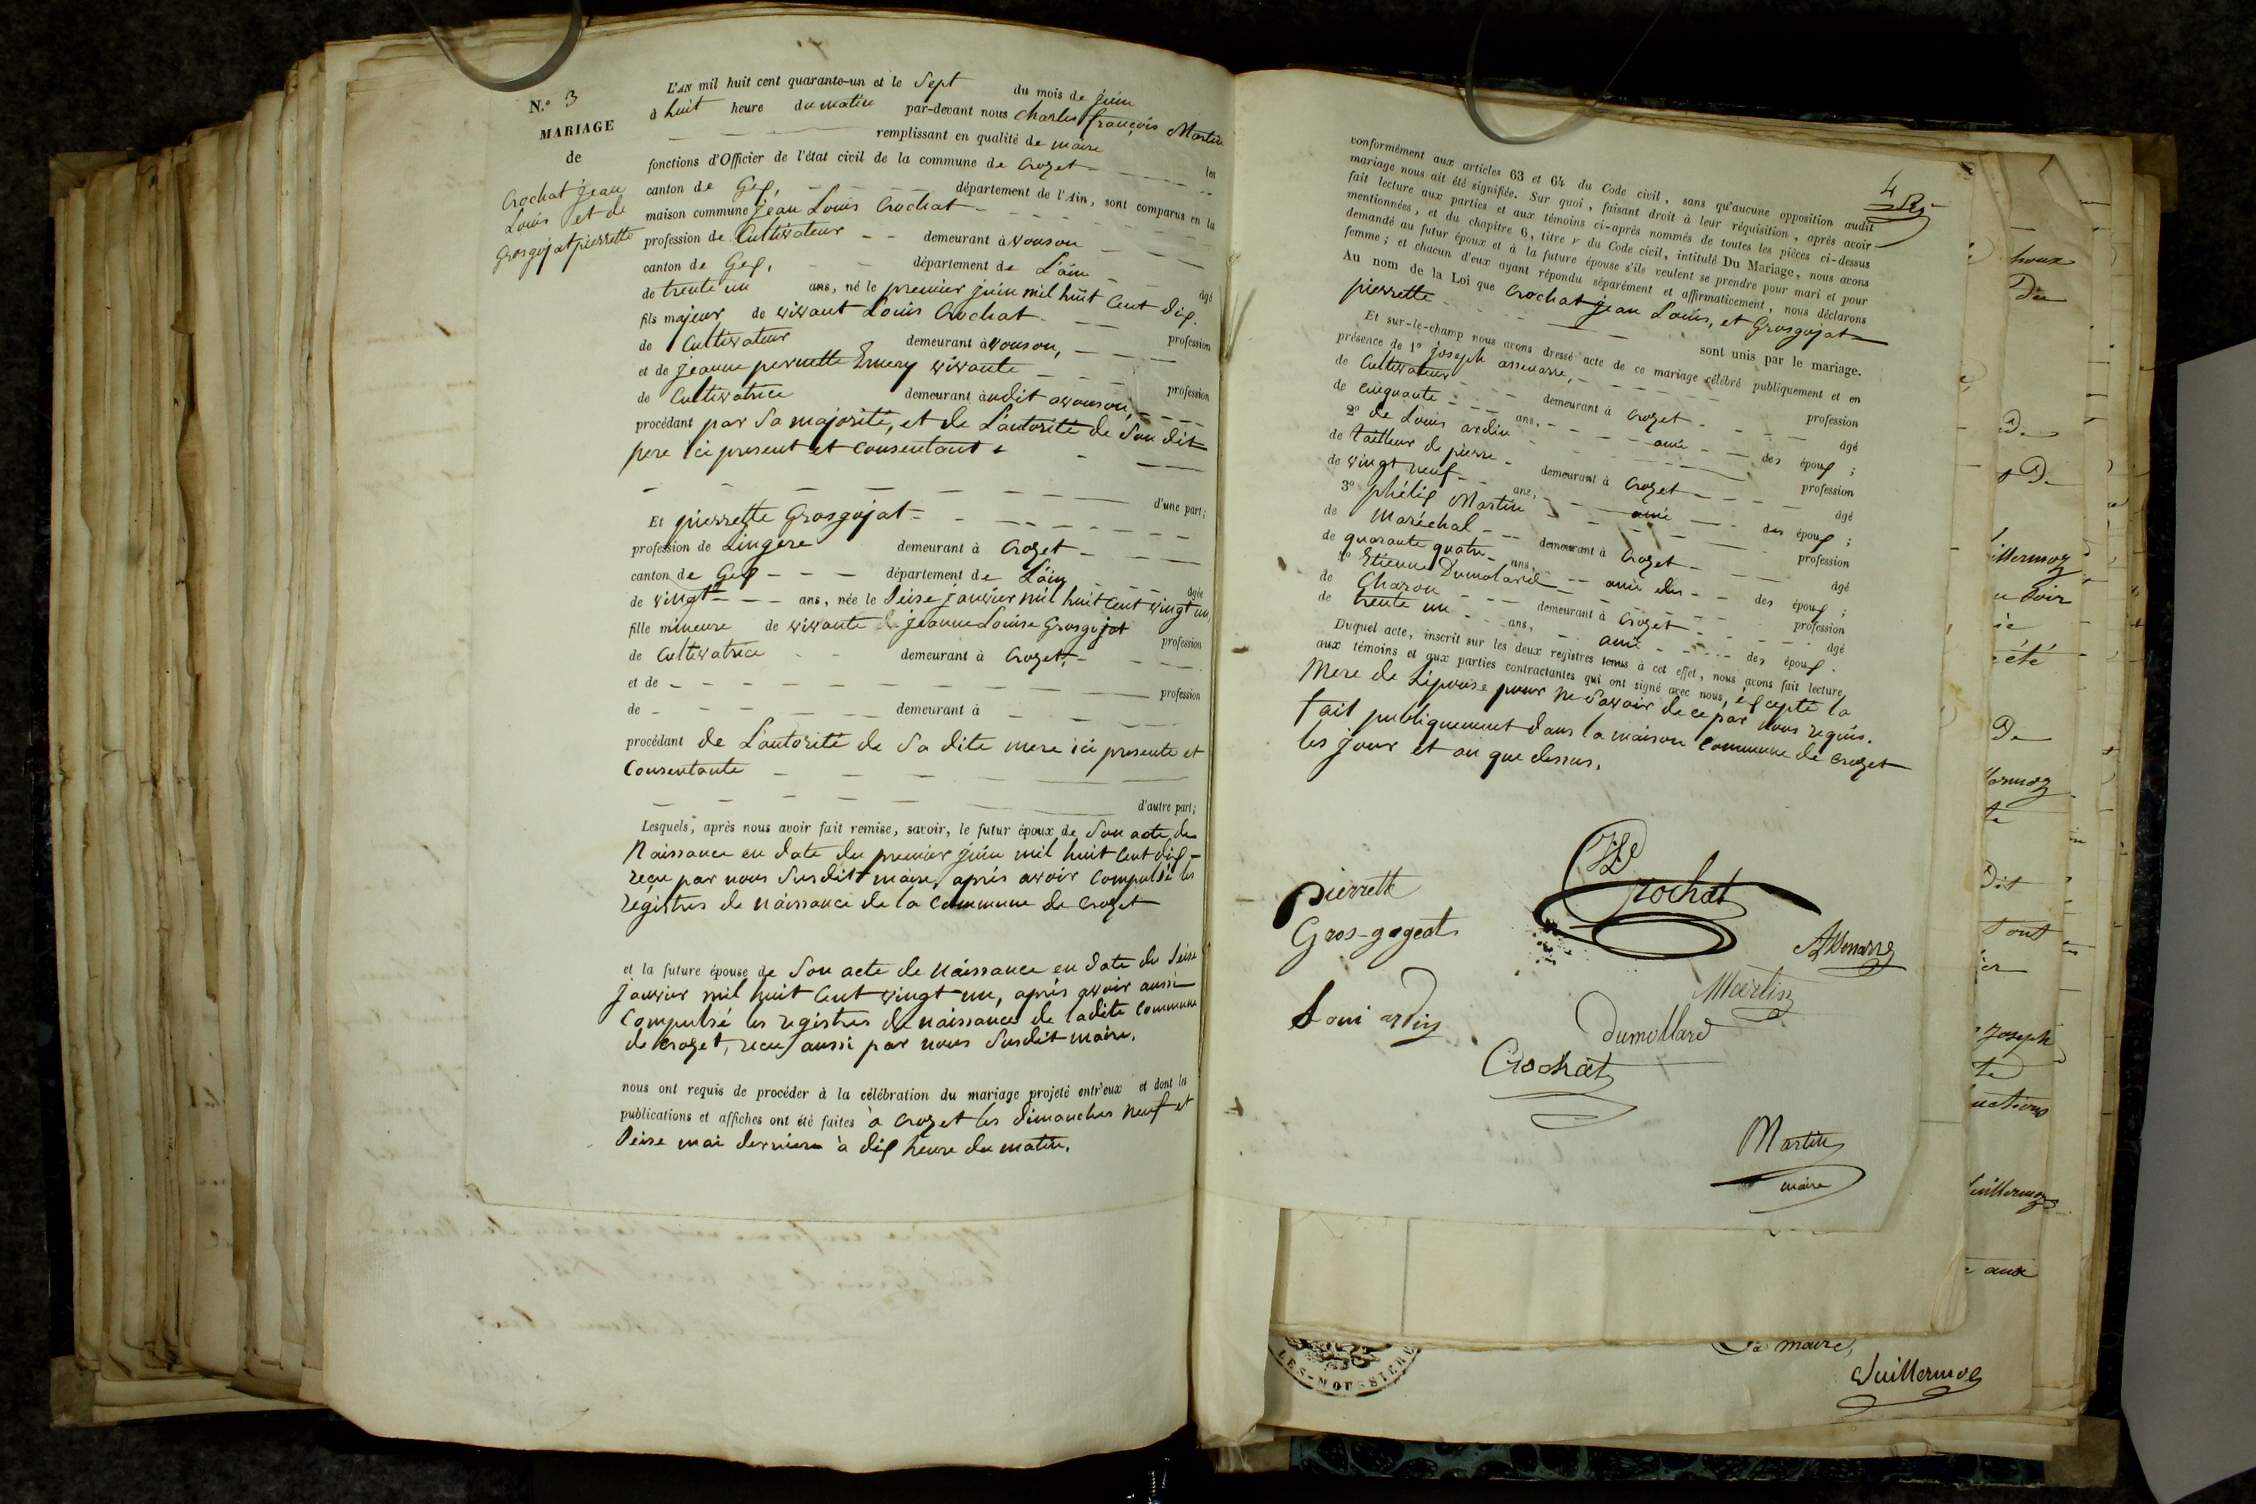 N.° 3
MARIAGE
de
Crochat jean
Louis et de
Grosgojat pierrette
L'AN mil huit cent quarante-un et le Sept du mois de juin
à huit heure du matin par-devant nous Charles françois Martin
remplissant en qualité de maire les
fonctions d'Officier de l'état civil de la commune de Crozet
canton de Gex, département de l'Ain, sont comparus en la
maison commune jean Louis Crochat
profession de Cultivateur demeurant à vouson
canton de Gex, département de L'ain âgé
de trente un ans, né le premier juin mil huit Cent dix.
fils majeur de vivant Louis Crochat profession
de Cultivateur demeurant à vouson,
et de jeanne pernette Emery vivante profession
de Cultivatrice demeurant audit avouson,
procédant par Sa majorité, et de L'autorité de Son dit
pere ici present et Consentant
d'une part;
Et pierrette Grosgojat
profession de Lingere demeurant à Crozet
canton de Gex département de L'ain âgée
de vingt ans, née le Seise janvier mil huit Cent vingt un,
fille mineure de vivante jeanne Louise Grosgojat profession
de Cultivatrice demeurant à Crozet,
et de profession
de demeurant à
procédant de L'autorité de Sa dite mere ici presente et
Consentante
d'autre part;
Lesquels, après nous avoir fait remise, savoir, le futur époux de Son acte de
Naissance en date du premier juin mil huit Cent dix
reçu par nous Susdit maire, après avoir Compulsé les
registres de naissance de la Commune de Crozet
et la future épouse de Son acte de Naissance en date du Seise
janvier mil huit Cent vingt un, après avoir aussi
Compulsé les registres de naissance de ladite Commune
de Crozet, reçu aussi par nous Susdit maire.
nous ont requis de procéder à la célébration du mariage projeté entr'eux et dont les
publications et affiches ont été faites à Crozet les dimanches neuf et
Seise mai derniers à dix heure du matin.
4
conformément aux articles 63 et 64 du Code civil, sans qu'aucune opposition audit
mariage nous ait été signifiée. Sur quoi, faisant droit à leur réquisition, après avoir
fait lecture aux parties et aux témoins ci-après nommés de toutes les pièces ci-dessus
mentionnées, et du chapitre 6, titre v du Code civil, intitulé Du Mariage, nous avons
demandé au futur époux et à la future épouse s'ils veulent se prendre pour mari et pour
femme; et chacun d'eux ayant répondu séparément et affirmativement, nous déclarons
Au nom de la Loi que Crochat jean Louis, et Grosgojat
pierrette sont unis par le mariage.
Et sur-le-champ nous avons dressé acte de ce mariage célébré publiquement et en
présence de 1° joseph assenarre, profession
de Cultivateur demeurant à Crozet âgé
de cinquante ans, amie des époux;
2° de Louis ardin profession
de tailleur de pierre demeurant à Crozet âgé
de vingt neuf ans, amie des époux;
3° phélix Martin profession
de Maréchal demeurant à Crozet âgé
de quarante quatre ans, amie des des époux;
4° Etienne Dumolard profession
de Charon demeurant à Crozet âgé
de trente un ans, amie des époux.
Duquel acte, inscrit sur les deux registres tenus à cet effet, nous avons fait lecture
aux témoins et aux parties contractantes qui ont signé avec nous, éxcepté la
Mere de L'épouse pour ne Savoir de ce par nous requis.
fait publiquement dans la maison Commune de Crozet
les jour et an que dessus.
pierrette
Gros-gogeat
Crochat
Assenarre
Martin
Loui ardin
dumollard
Crochat
Martin
maire
LES-MOUSSIÈRES
Le maire,
Guillermoz